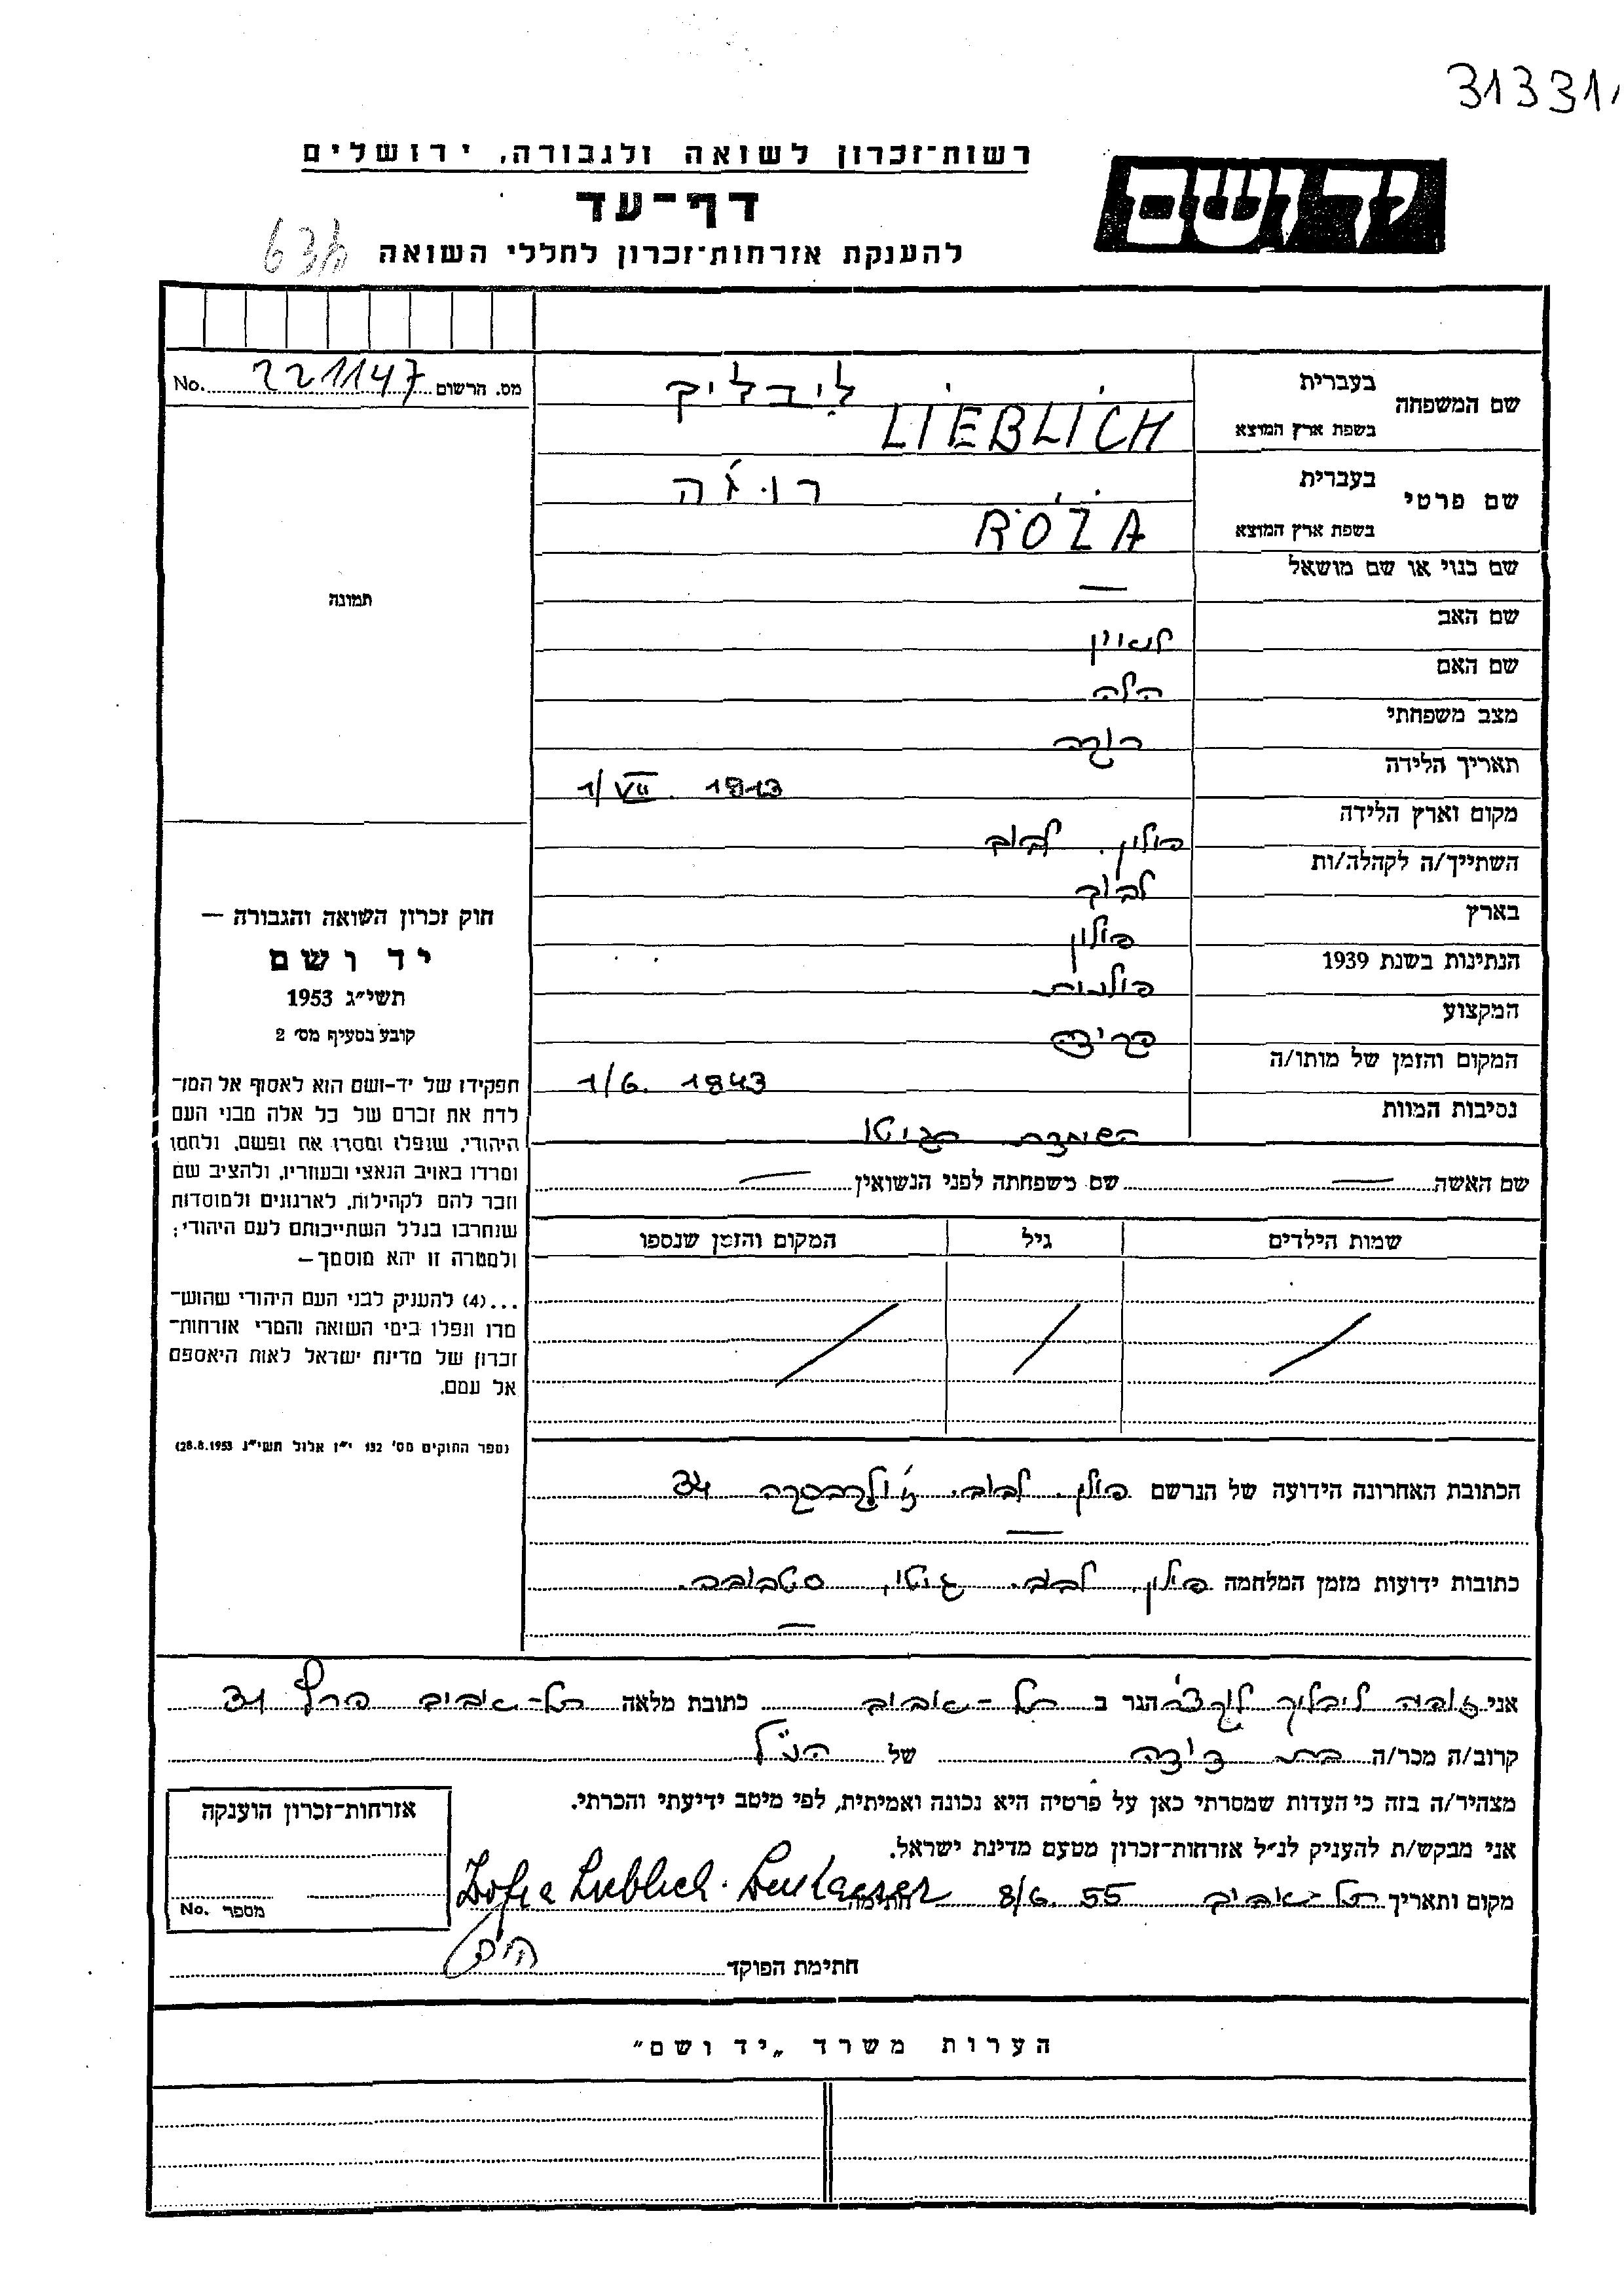 31331
יד ושם
רשות-זכרון לשואה ולגבורה, ירושלים
דף-עד
להענקת אזרחות-זכרון לחללי השואה
שם המשפחה בעברית ליבליק
בשפת ארץ המוצא LIEBLICH
מס. הרשום 221147 No.
שם פרטי בעברית רוז'ה
בשפת ארץ המוצא RÓŻA
שם כנוי או שם מושאל —
תמונה
שם האב
שם האם הלה
מצב משפחתי רוקה
תאריך הלידה 1/VII. 1913
מקום וארץ הלידה פולין. לבוב
השתייך/ה לקהלה/ות לבוב
בארץ פולין
הנתינות בשנת 1939 פולנית
המקצוע פקידה
המקום והזמן של מותו/ה 1/6. 1943
נסיבות המוות השמדת הגיטו
שם האשה — שם משפחתה לפני הנשואין —
שמות הילדים גיל המקום והזמן שנספו
חוק זכרון השואה והגבורה —
יד ושם
תשי"ג 1953
קובע בסעיף מס' 2
תפקידו של יד-ושם הוא לאסוף אל המו-
לדת את זכרם של כל אלה מבני העם
היהודי, שנפלו ומסרו את נפשם, נלחמו
ומרדו באויב הנאצי ובעוזריו, ולהציב שם
וזכר להם לקהילות, לארגונים ולמוסדות
שנחרבו בגלל השתייכותם לעם היהודי;
ולמטרה זו יהא מוסמך —
...(4) להעניק לבני העם היהודי שהוש-
מדו ונפלו בימי השואה והמרי אזרחות-
זכרון של מדינת ישראל לאות היאספם
אל עמם.
(ספר החוקים מס' 132 י"ז אלול תשי"ג 28.8.1953)
הכתובת האחרונה הידועה של הנרשם פולין. לבוב. 34
כתובות ידועות מזמן המלחמה פולין. לבוב. גיטו,
אני זופיה ליבליך הגר ב תל-אביב כתובת מלאה תל-אביב 31
קרוב/ה מכר/ה בת דודה של הנ"ל
מצהיר/ה בזה כי העדות שמסרתי כאן על פרטיה היא נכונה ואמיתית, לפי מיטב ידיעתי והכרתי.
אני מבקש/ת להעניק לנ"ל אזרחות-זכרון מטעם מדינת ישראל.
מקום ותאריך תל-אביב 8/6. 55 חתימה Zofia Lieblich
אזרחות-זכרון הוענקה
מספר No.
חתימת הפוקד
הערות משרד „יד ושם"